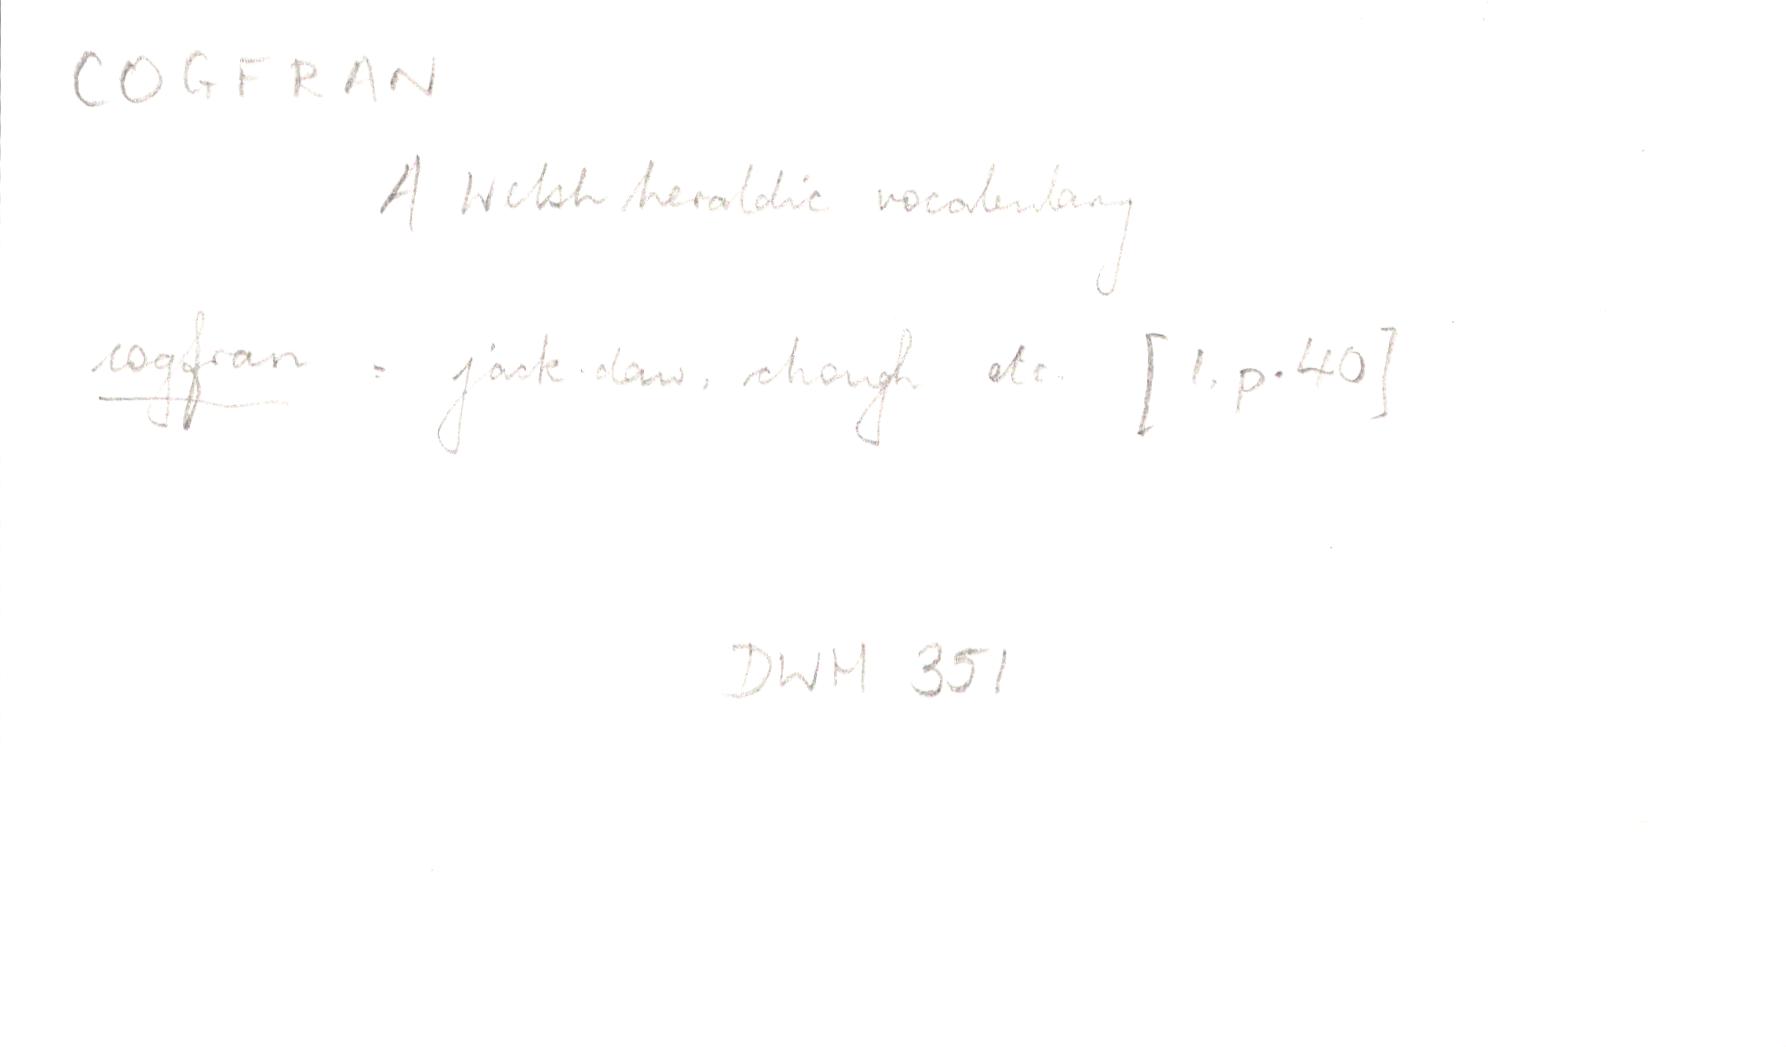 COGFRAN
A Welsh heraldic vocabulary
cogfran = jack-daw, chough etc. [1. p. 40]
DWM 351